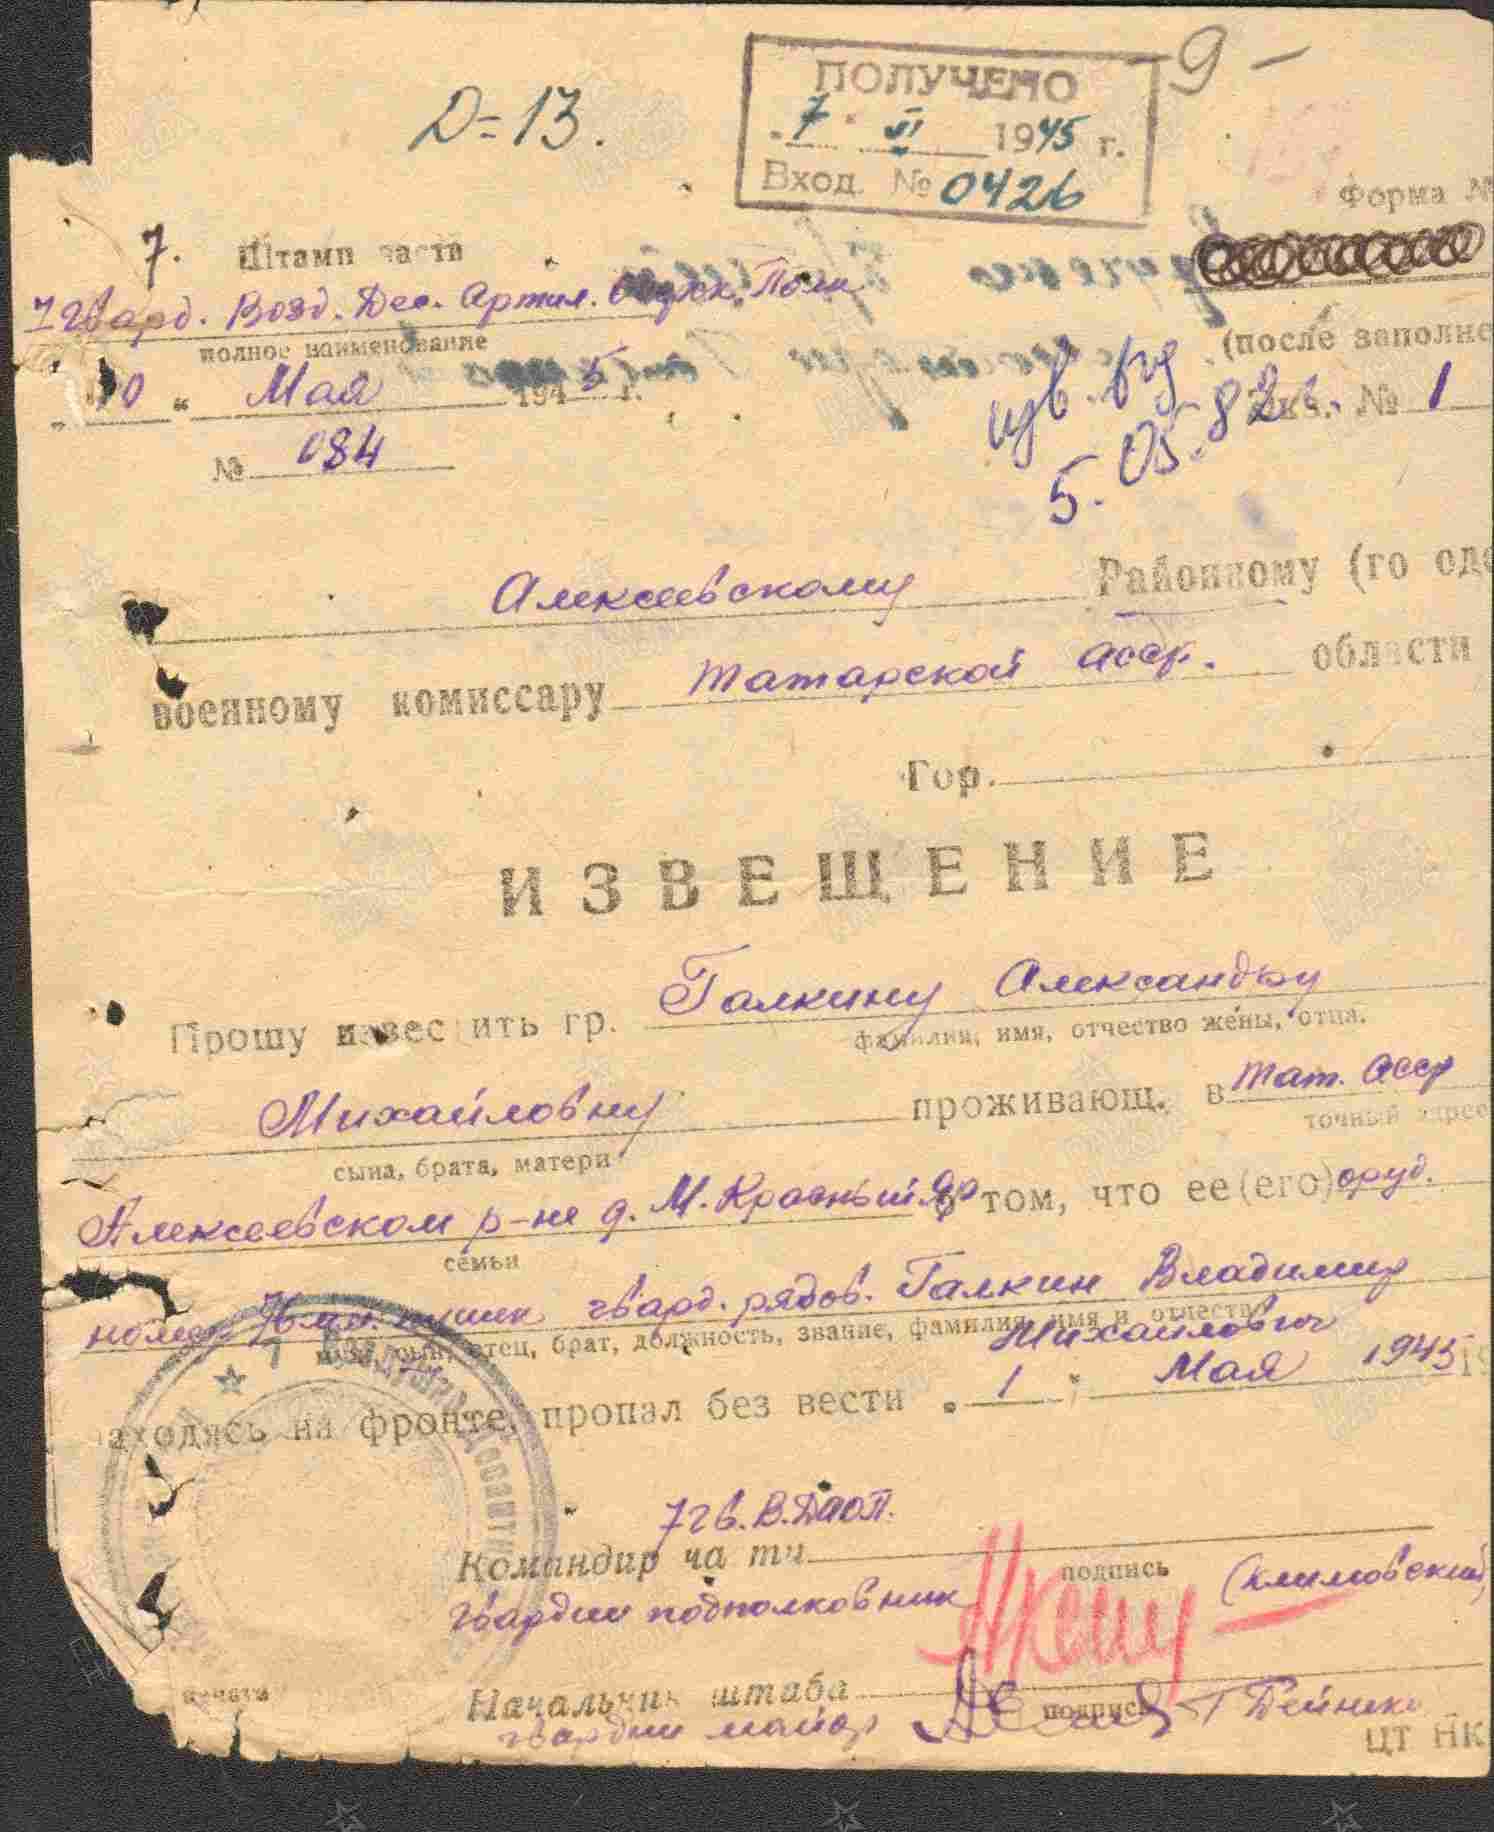 -9-
Д=13.
ПОЛУЧЕНО
"7" VI 1945 г.
Вход. № 0426
Форма №
7. Штамп части
7 Гвард. Возд. Дес. Артил. Полк
полное наименование
(после заполне
"10" Мая 1945 г.
Экз. № 1
5.05.82г.
№ 084
Алексеевскому Районному (го одс
военному комиссару Татарской АССР. области
Гор.
ИЗВЕЩЕНИЕ
Прошу известить гр. Галкину Александру
фамилия, имя, отчество жены, отца,
Михайловну проживающ. в Тат. АССР
сына, брата, матери
точный адрес
Алексеевском р-не д. М. Красный Яр о том, что ее(его) оруд.
семьи
номер 76 мм. пушки гвард. рядов. Галкин Владимир
муж, сын, отец, брат, должность, звание, фамилия, имя и отчество
Михайлович
находясь на фронте, пропал без вести "1" Мая 1945 19
7 гв. В.ДАОП.
Командир части
подпись
гвардии подполковник (Климовский)
Начальник штаба
подпись
гвардии майор
печать
ЦТ НК